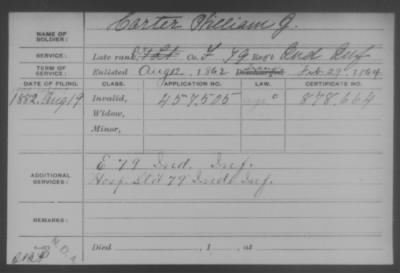 NAME OF SOLDIER: Carter William G.
SERVICE: Late rank, Co. F 79 Reg't Ind Inf
TERM OF SERVICE: Enlisted Aug 12, 1862 Discharged Feb 29, 1864
DATE OF FILING. CLASS. APPLICATION NO. LAW. CERTIFICATE NO.
1882 Aug 19 Invalid, 457,505 878,664
Widow,
Minor,
ADDITIONAL SERVICES: E 79 Ind. Inf.
Hosp. Std 79 Ind. Inf.
REMARKS:
Died , 1 , at